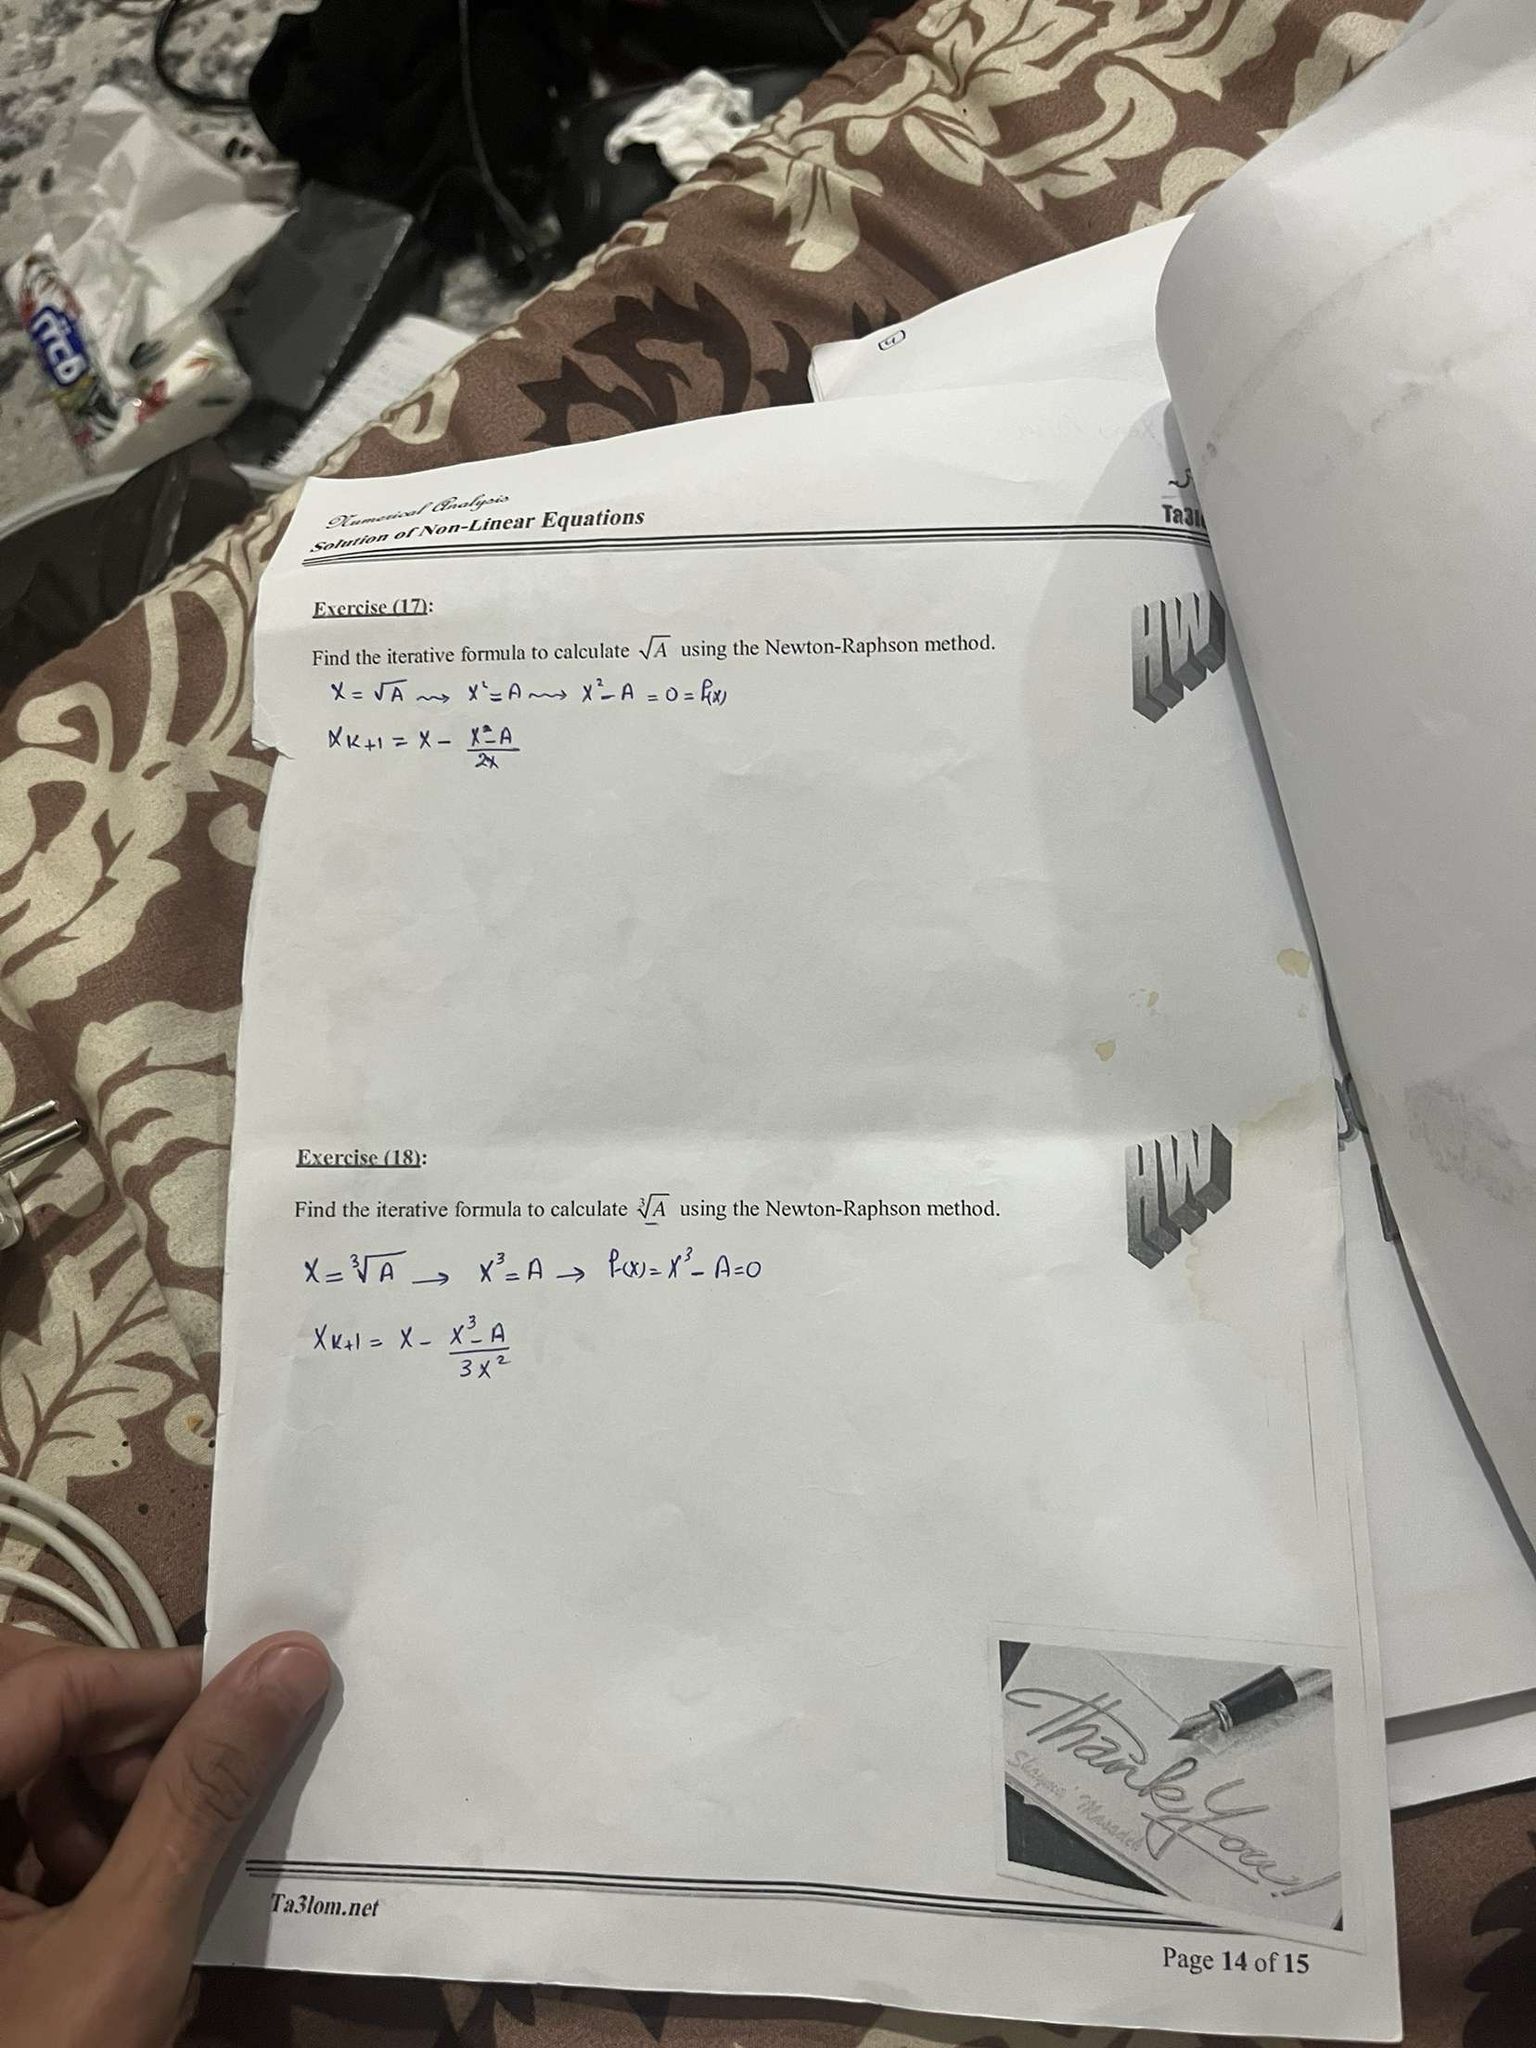 Numerical Analysis
Solution of Non-Linear Equations
Ta3l
Exercise (17):
HW
Find the iterative formula to calculate √A using the Newton-Raphson method.
X = √A ⇝ X² = A ⇝ X² - A = 0 = f(x)
X K+1 = X - (X² - A)/(2X)
Exercise (18):
HW
Find the iterative formula to calculate ∛A using the Newton-Raphson method.
X = ∛A → X³ = A → f(x) = X³ - A = 0
X K+1 = X - (X³ - A)/(3X²)
Thank You!
Ta3lom.net
Page 14 of 15